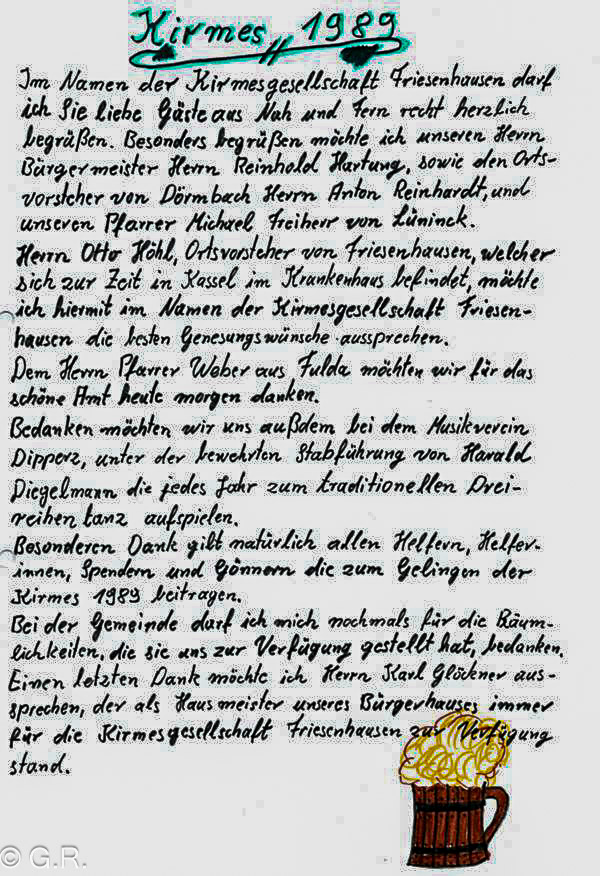 Kirmes 1989
Im Namen der Kirmesgesellschaft Friesenhausen darf
ich Sie liebe Gäste aus Nah und Fern recht herzlich
begrüßen. Besonders begrüßen möchte ich unseren Herrn
Bürgermeister Herrn Reinhold Hartung, sowie den Orts-
vorsteher von Dörmbach Herrn Anton Reinhardt, und
unseren Pfarrer Michael Freiherr von Lüninck.
Herrn Otto Höhl, Ortsvorsteher von Friesenhausen, welcher
sich zur Zeit in Kassel im Krankenhaus befindet, möchte
ich hiermit im Namen der Kirmesgesellschaft Friesen-
hausen die besten Genesungswünsche aussprechen.
Dem Herrn Pfarrer Weber aus Fulda möchten wir für das
schöne Amt heute morgen danken.
Bedanken möchten wir uns außdem bei dem Musikverein
Dipperz, unter der bewehrten Stabführung von Harald
Diegelmann die jedes Jahr zum traditionellen Drei-
reihentanz aufspielen.
Besonderen Dank gilt natürlich allen Helfern, Helfer-
innen, Spendern und Gönnern die zum Gelingen der
Kirmes 1989 beitragen.
Bei der Gemeinde darf ich mich nochmals für die Räum-
lichkeiten, die sie uns zur Verfügung gestellt hat, bedanken.
Einen letzten Dank möchte ich Herrn Karl Glöckner aus-
sprechen, der als Hausmeister unseres Bürgerhauses immer
für die Kirmesgesellschaft Friesenhausen zur Verfügung
stand.
© G.R.